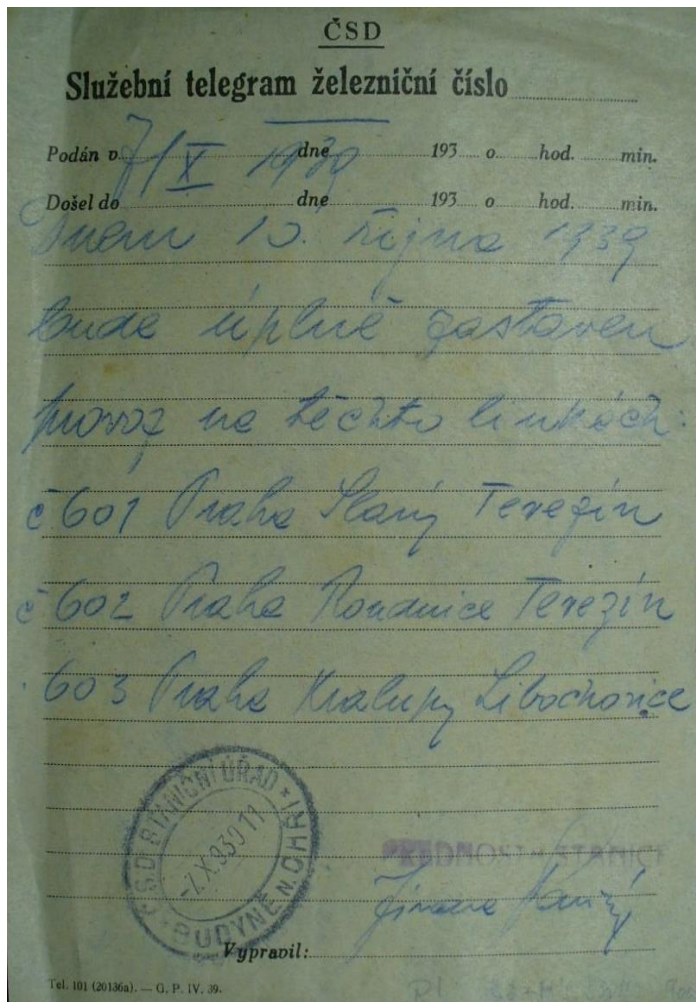 ČSD
Služební telegram železniční číslo
Podán v 7/X 1939 dne 193 o hod. min.
Došel do dne 193 o hod. min.
Dnem 10. října 1939
bude úplně zastaven
provoz na těchto linkách:
č 601 Praha Slaný Terezín
č 602 Praha Roudnice Terezín
603 Praha Kralupy Libochovice
Č.S.D. STANIČNÍ ÚŘAD * BUDYNĚ N. OHŘÍ
-7.X.939 11
PŘEDNOSTA STANICE
Vypravil:
Tel. 101 (20136a). — G. P. IV. 39.